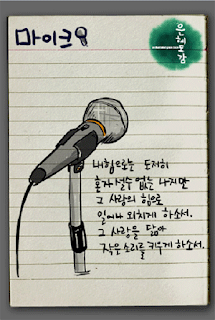 마이크
은혜도감
내힘으로는 도저히
혼자 설수 없는 나지만
그 사랑의 힘으로
일어나 외치게 하소서.
그 사랑을 닮아
작은 소리를 키우게 하소서.